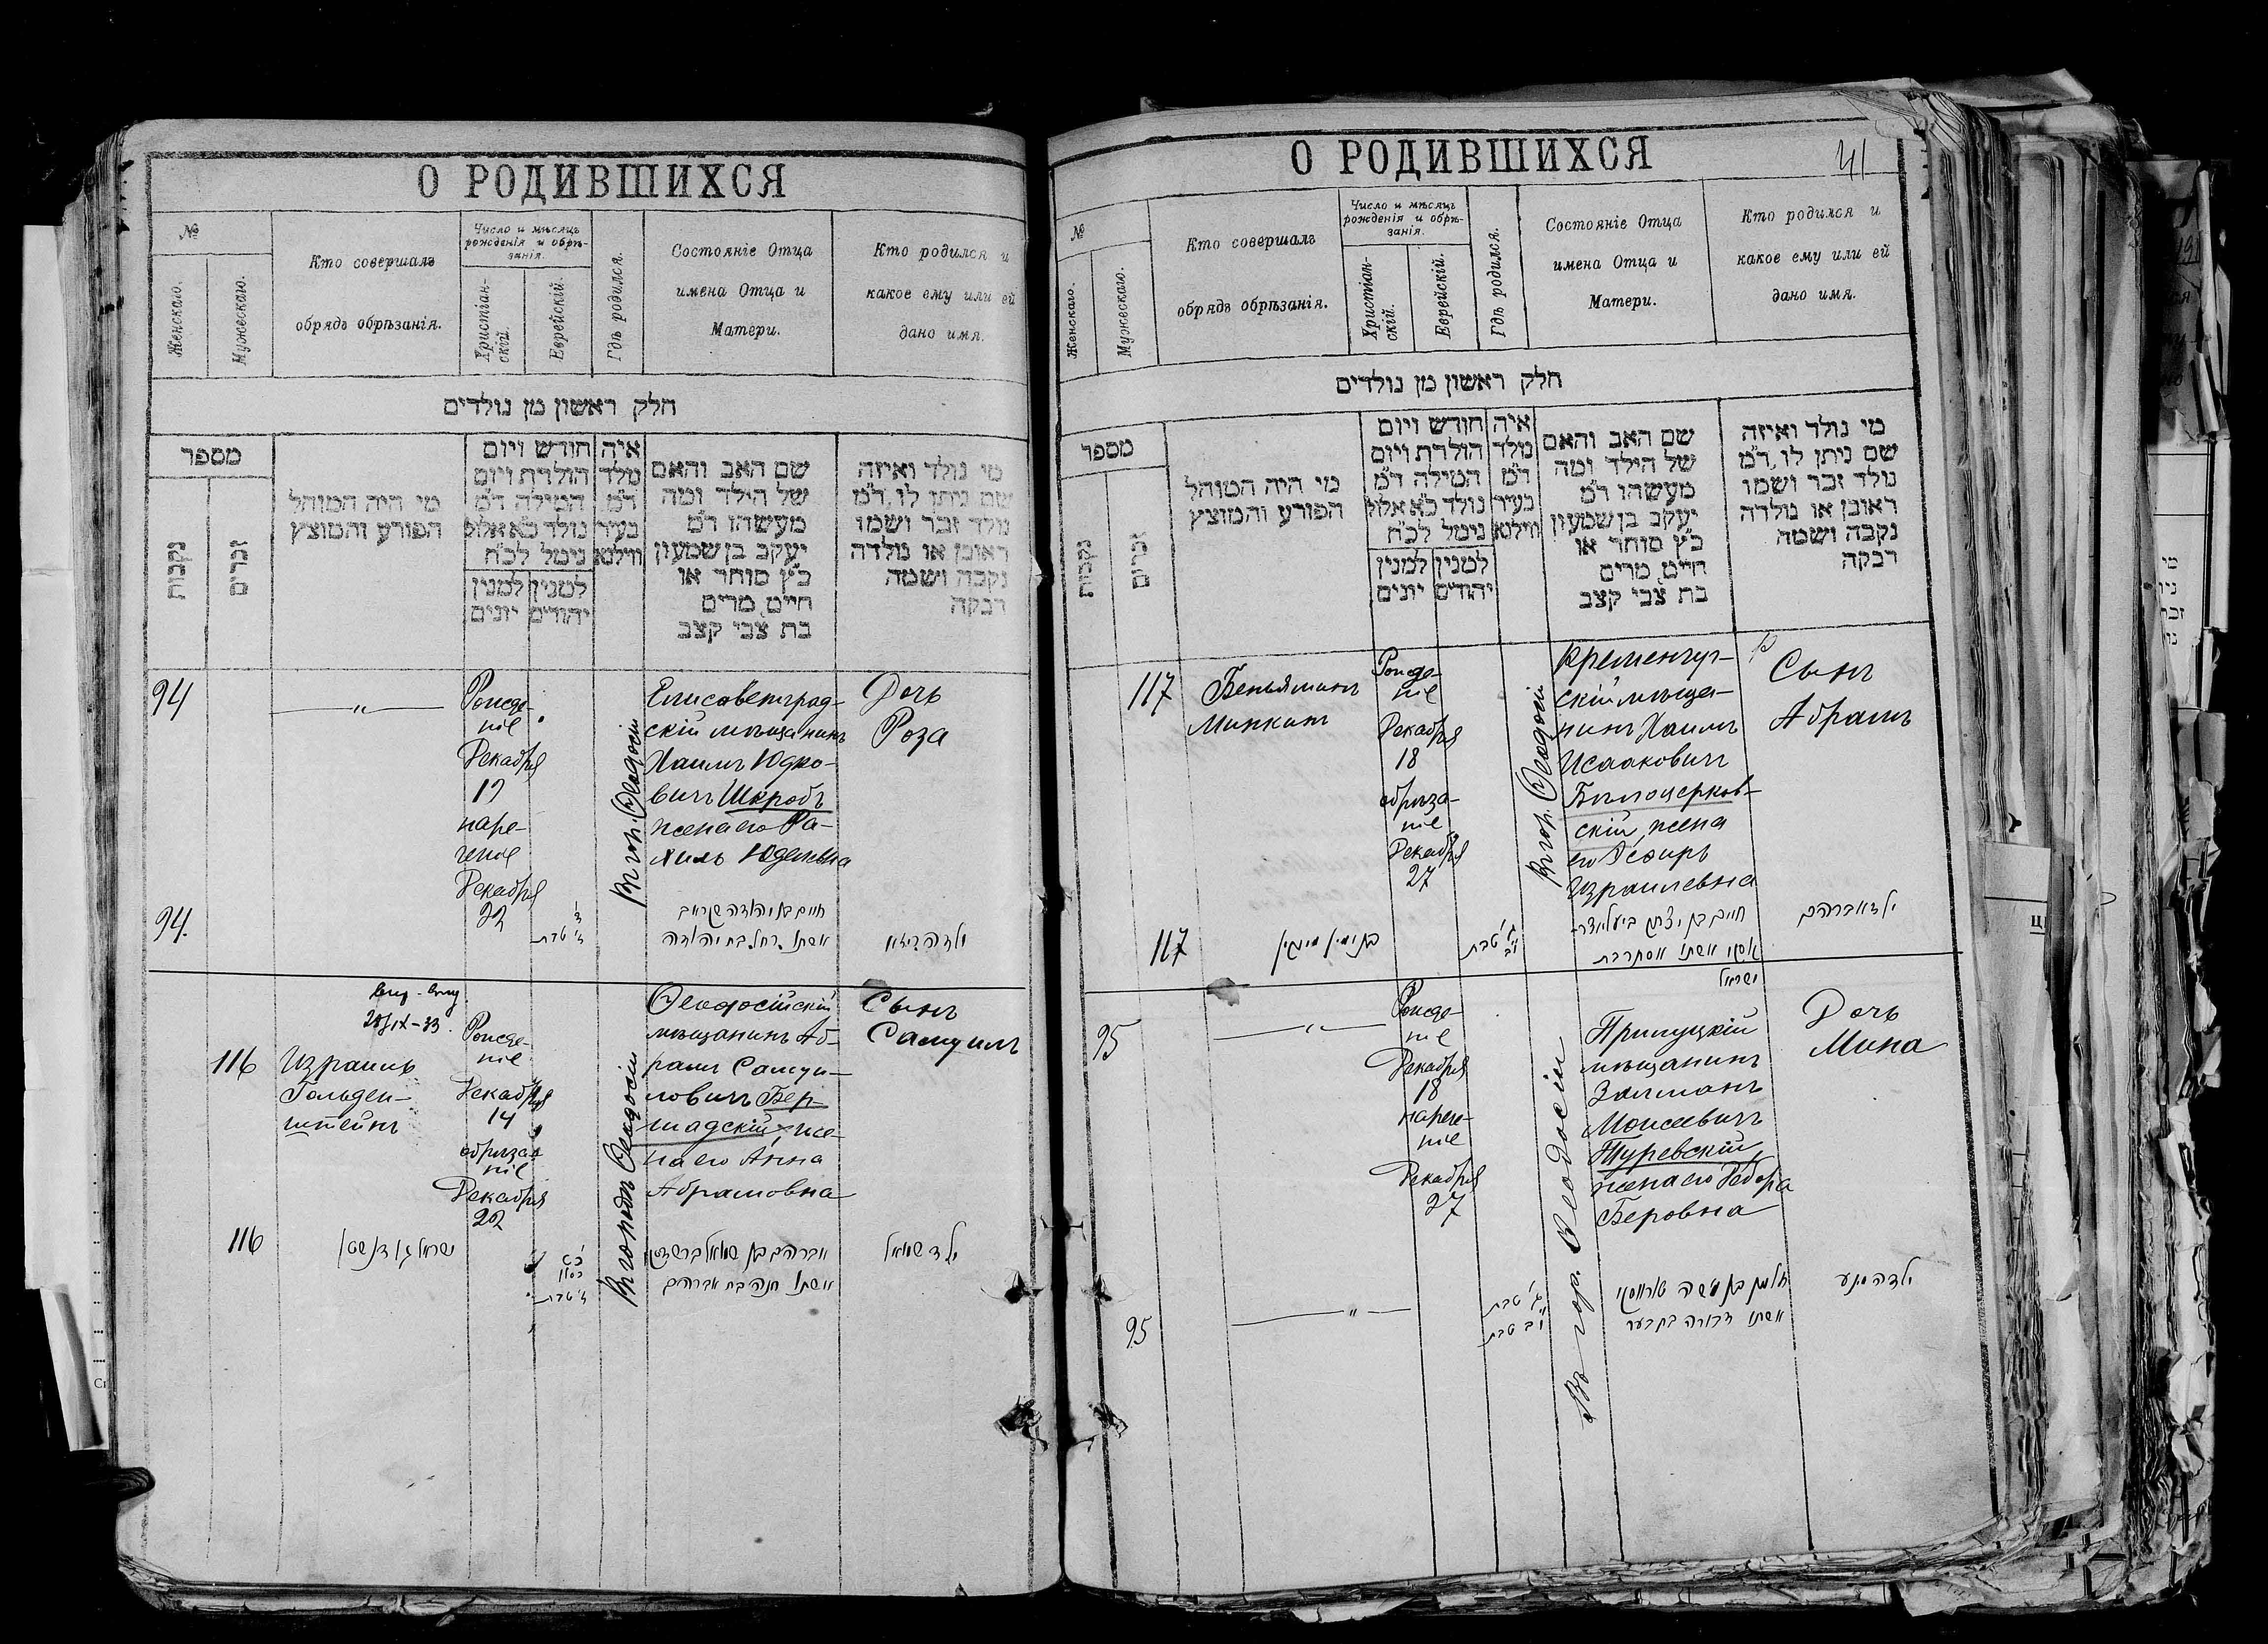 О РОДИВШИХСЯ
№
Женскаго.
Мужескаго.
Кто совершалъ
обрядъ обрѣзанія.
Число и мѣсяцъ
рожденія и обрѣ-
занія.
Христіан-
скій.
Еврейскій.
Гдѣ родился.
Состояніе Отца
имена Отца и
Матери.
Кто родился и
какое ему или ей
дано имя.
חלק ראשון מן נולדים
מספר
נקבות
זכרים
מי היה המוהל
הפורע והמוצץ
חודש ויום
הולדת ויום
המילה ד״מ
נולד כ״א אלול
נימל לכ״ח
למנין למנין
יהודים יונים
איה
נולד
ד״מ
בעיר
ווילנא
שם האב והאם
של הילד ומה
מעשהו ד״מ
יעקב בן שמעון
כ״ץ סוחר או
חייט מרים
בת צבי קצב
מי נולד ואיזה
שם ניתן לו ד״מ
נולד זכר ושמו
ראובן או נולדה
נקבה ושמה
רבקה
94
— „ —
Рожде-
ніе
Декабря
19
наре-
ченіе
Декабря
22
Въ гор. Ѳеодосіи
Елисаветград-
скій мѣщанинъ
Хаимъ Юдко-
вичъ Шкробъ
жена его Ра-
хиль Юделевна
Дочь
Роза
94.
ז׳ טבת
חיים בן יהודה שקראב
אשתו רחל בת יהודה
ילדה ריזא
116
Израиль
Гольден-
штейнъ
Рожде-
ніе
Декабря
14
обрѣза-
ніе
Декабря
22
Въ городѣ Ѳеодосіи
Ѳеодосійскій
мѣщанинъ Аб-
рамъ Самуи-
ловичъ Бер-
шадскій, же-
на его Анна
Абрамовна
Сынъ
Самуилъ
116
ישראל גולדנשטין
כ״ט
כסלו
ז׳ טבת
אברהם בן שמואל ברשדסקי
אשתו חנה בת אברהם
ילד שמואל
О РОДИВШИХСЯ
41
№
Женскаго.
Мужескаго.
Кто совершалъ
обрядъ обрѣзанія.
Число и мѣсяцъ
рожденія и обрѣ-
занія.
Христіан-
скій.
Еврейскій.
Гдѣ родился.
Состояніе Отца
имена Отца и
Матери.
Кто родился и
какое ему или ей
дано имя.
חלק ראשון מן נולדים
מספר
נקבות
זכרים
מי היה המוהל
הפורע והמוצץ
חודש ויום
הולדת ויום
המילה ד״מ
נולד כ״א אלול
נימל לכ״ח
למנין למנין
יהודים יונים
איה
נולד
ד״מ
בעיר
ווילנא
שם האב והאם
של הילד ומה
מעשהו ד״מ
יעקב בן שמעון
כ״ץ סוחר או
חייט מרים
בת צבי קצב
מי נולד ואיזה
שם ניתן לו ד״מ
נולד זכר ושמו
ראובן או נולדה
נקבה ושמה
רבקה
117
Беньяминъ
Минкинъ
Рожде-
ніе
Декабря
18
обрѣза-
ніе
Декабря
27
Въ гор. Ѳеодосіи
Кременчуг-
скій мѣща-
нинъ Хаимъ
Исааковичъ
Бѣлоцерков-
скій, жена
его Эсѳирь
Израилевна
Сынъ
Абрамъ
117
בנימין מינקין
ג׳ טבת
י״ב
חיים בן יצחק ביעלוצר-
אשתו אסתר בת
ישראל
ילד אברהם
95
— „ —
Рожде-
ніе
Декабря
18
нарече-
ніе
Декабря
27
Въ гор. Ѳеодосіи
Прилуцкій
мѣщанинъ
Залманъ
Моисеевичъ
Туревскій,
жена его Дебора
Беровна
Дочь
Мина
95
— „ —
ג׳ טבת
י״ב טבת
זלמן בן משה טוראווסקי
אשתו דבורה בת בער
ילדה מינע